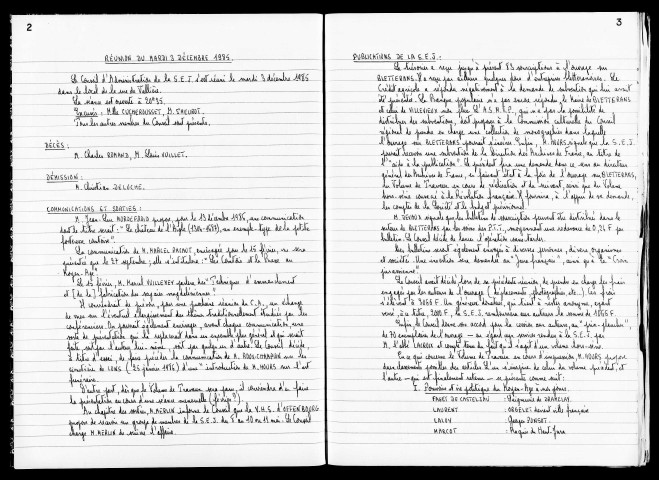 2
RÉUNION DU MARDI 3 DÉCEMBRE 1985.
Le Conseil d'Administration de la S.E.J. s'est réuni le mardi 3 décembre 1985
dans le local de la rue de Vallière.
La séance est ouverte à 20h35.
Excusés : Mlle CUCHEROUSSET, M. JACUROT.
Tous les autres membres du Conseil sont présents.
DÉCÈS :
M. Charles ROMAND, M. Alain VUILLET.
DÉMISSION :
M. Christian DELOCHE.
COMMUNICATIONS ET SORTIES :
M. Jean-Luc MORDEFROID propose pour le 13 décembre 1986, une communication
dont le titre serait : "Le château de l'Aigle (1304-1637), un exemple-type de la petite
forteresse comtoise".
La communication de M. MARCEL PACAUT, envisagée pour le 15 février, ne sera
présentée que le 27 septembre, elle s'intitulera : "Les Comtois et la Bresse au
Moyen-Age".
Le 15 février, M. Marcel VUILLEMEY parlera des "Techniques d'emmanchement
et [de la] fabrication des sagaies magdaléniennes".
Il conviendrait de prévoir, pour une prochaine réunion de C.A., un échange
de vues sur l'éventuel élargissement des thèmes traditionnellement étudiés par les
conférenciers. On pourrait également envisager, avant chaque communication, une
sorte de présentation qui la replacerait dans un ensemble plus général et qui serait
faite soit par l'auteur lui-même, soit par quelqu'un d'autre. Le Conseil décide,
à titre d'essai, de faire précéder la communication de M. ROBERT CHAPUIS sur les
cimetières de LONS (25 janvier 1986) d'une "introduction de M. HOURS sur l'art
funéraire".
D'autre part, dès que le Volume de Travaux sera paru, il conviendra d'en faire
la présentation au cours d'une séance mensuelle (février ?).
Au chapitre des sorties, M. MERLIN informe le Conseil que la V.H.S. d'OFFENBOURG
propose de recevoir un groupe de membres de la S.E.J. du 8 au 10 ou 11 mai. Le Conseil
charge M. MERLIN de suivre l'affaire.
3
PUBLICATIONS DE LA S.E.J. :
Le trésorier a reçu jusqu'à présent 83 souscriptions à l'ouvrage sur
BLETTERANS. Il a reçu par ailleurs quelques dons d'entreprises bletteranoises. Le
Crédit agricole a répondu négativement à la demande de subvention qui lui avait
été présentée. La Banque populaire n'a pas encore répondu. Le Maire de BLETTERANS
et celui de VILLEVIEUX
subventions, doit proposer à la Commission culturelle du Conseil
régional de prendre en charge une collection de monographies dans laquelle
l'ouvrage sur BLETTERANS pourrait s'insérer. Enfin, M. HOURS signale que la S.E.J.
pourrait recevoir une subvention de la Direction des Archives de France, au titre de
l'"aide à la publication". Le président fera une demande dans ce sens au directeur
général des Archives de France, en faisant état à la fois de l'ouvrage sur BLETTERANS,
du Volume de Travaux en cours de réalisation et du suivant, ainsi que du Volume
hors-série consacré à la Révolution française. Il fournira, à l'appui de sa demande,
les comptes de la Société et le budget prévisionnel.
M. GENOUX signale que les bulletins de souscription peuvent être distribués dans le
secteur de BLETTERANS par les soins des P.T.T., moyennant une redevance de 0,21 F par
bulletin. Le Conseil décide de lancer l'opération souhaitée.
Des bulletins seront également envoyés à diverses personnes, divers organismes
et sociétés. Une insertion sera demandée au "Jura français", ainsi qu'à la "Croix
jurassienne".
Le Conseil avait décidé, lors de sa précédente réunion, de prendre en charge les frais
engagés par les auteurs de l'ouvrage (documents, photographies, etc.). Ces frais
s'élèvent à 3055 F. Un généreux donateur, qui tient à rester anonyme, ayant
versé, à ce titre, 2000 F, la S.E.J. remboursera aux auteurs la somme de 1055 F.
Enfin, le Conseil donne son accord pour la cession aux auteurs, au "prix-plancher",
de 70 exemplaires de l'ouvrage — eu égard aux services rendus à la S.E.J. par
M. l'abbé LACROIX et compte tenu du fait qu'il s'agit d'un volume hors-série.
En ce qui concerne le Volume de Travaux en cours d'impression, M. HOURS propose
deux classements possibles des articles. L'un s'inspire de celui du volume précédent, et
l'autre — qui est finalement retenu — se présente comme suit :
I. Pouvoirs et vie politique du Moyen-Age à nos jours.
FAURE DE CASTELJAU : Seigneurie de DRAMELAY.
LAURENT : ORGELET devient ville française
LALOY : Georges PONSOT.
MARCOT : Maquis du Haut-Jura